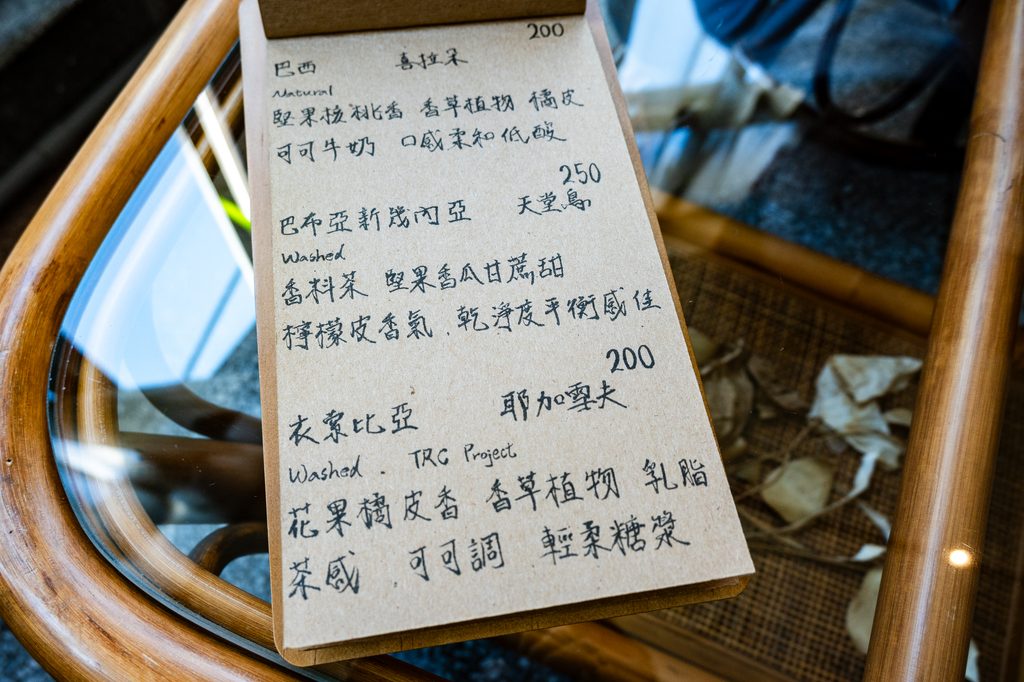 200
巴西 喜拉朵
Natural
堅果核桃香 香草植物 橘皮
可可牛奶 口感柔和低酸
250
巴布亞新幾內亞 天堂鳥
Washed
香料茶 堅果香瓜甘蔗甜
檸檬皮香氣.乾淨度平衡感佳
200
衣索比亞 耶加雪夫
Washed. TRC Project
花果橘皮香 香草植物 乳脂
茶感 可可調 輕柔糖漿